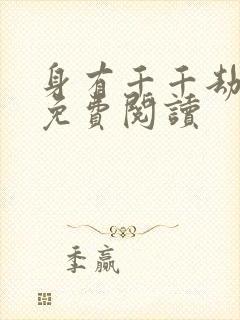 身有千千劫
免費閱讀
季贏